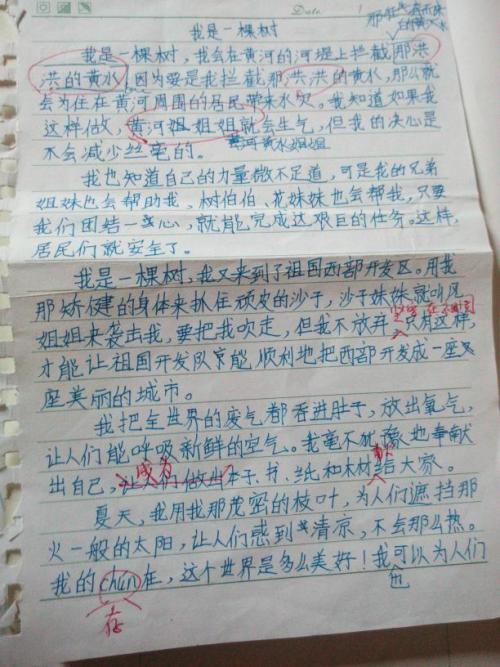 Date
我是一棵树
我是一棵树，我会在黄河的河堤上拦截那洪
洪的黄水，因为要是我拦截那洪洪的黄水，那么就
会为住在黄河周围的居民带来水灾。我知道如果我
这样做，黄河姐姐姐就会生气，但我的决心是
黄河黄水姐姐
不会减少丝毫的。
我也知道自己的力量微不足道，可是我的兄弟
姐妹也会帮助我，树伯伯、花妹妹也会帮我，只要
我们团结一心，就能完成这艰巨的任务。这样，
居民们就安全了。
我是一棵树，我又来到了祖国西部开发区。用我
那矫健的身体来扒住顽皮的沙子，沙子妹妹就叫风
姐姐来袭击我，要把我吹走，但我不放弃，只有这样，
才能让祖国开发队京能顺利地把西部开发成一座又
座美丽的城市。
我把全世界的废气都吞进肚子，放出氧气，
让人们能呼吸新鲜的空气。我毫不犹豫地奉献
出自己，让人们做出本子、书、纸和木材给大家。
成为
献
夏天，我用我那茂密的枝叶，为人们遮挡那
火一般的太阳，让人们感到清凉，不会那么热。
我的chún在，这个世界是多么美好！我可以为人们
存
也